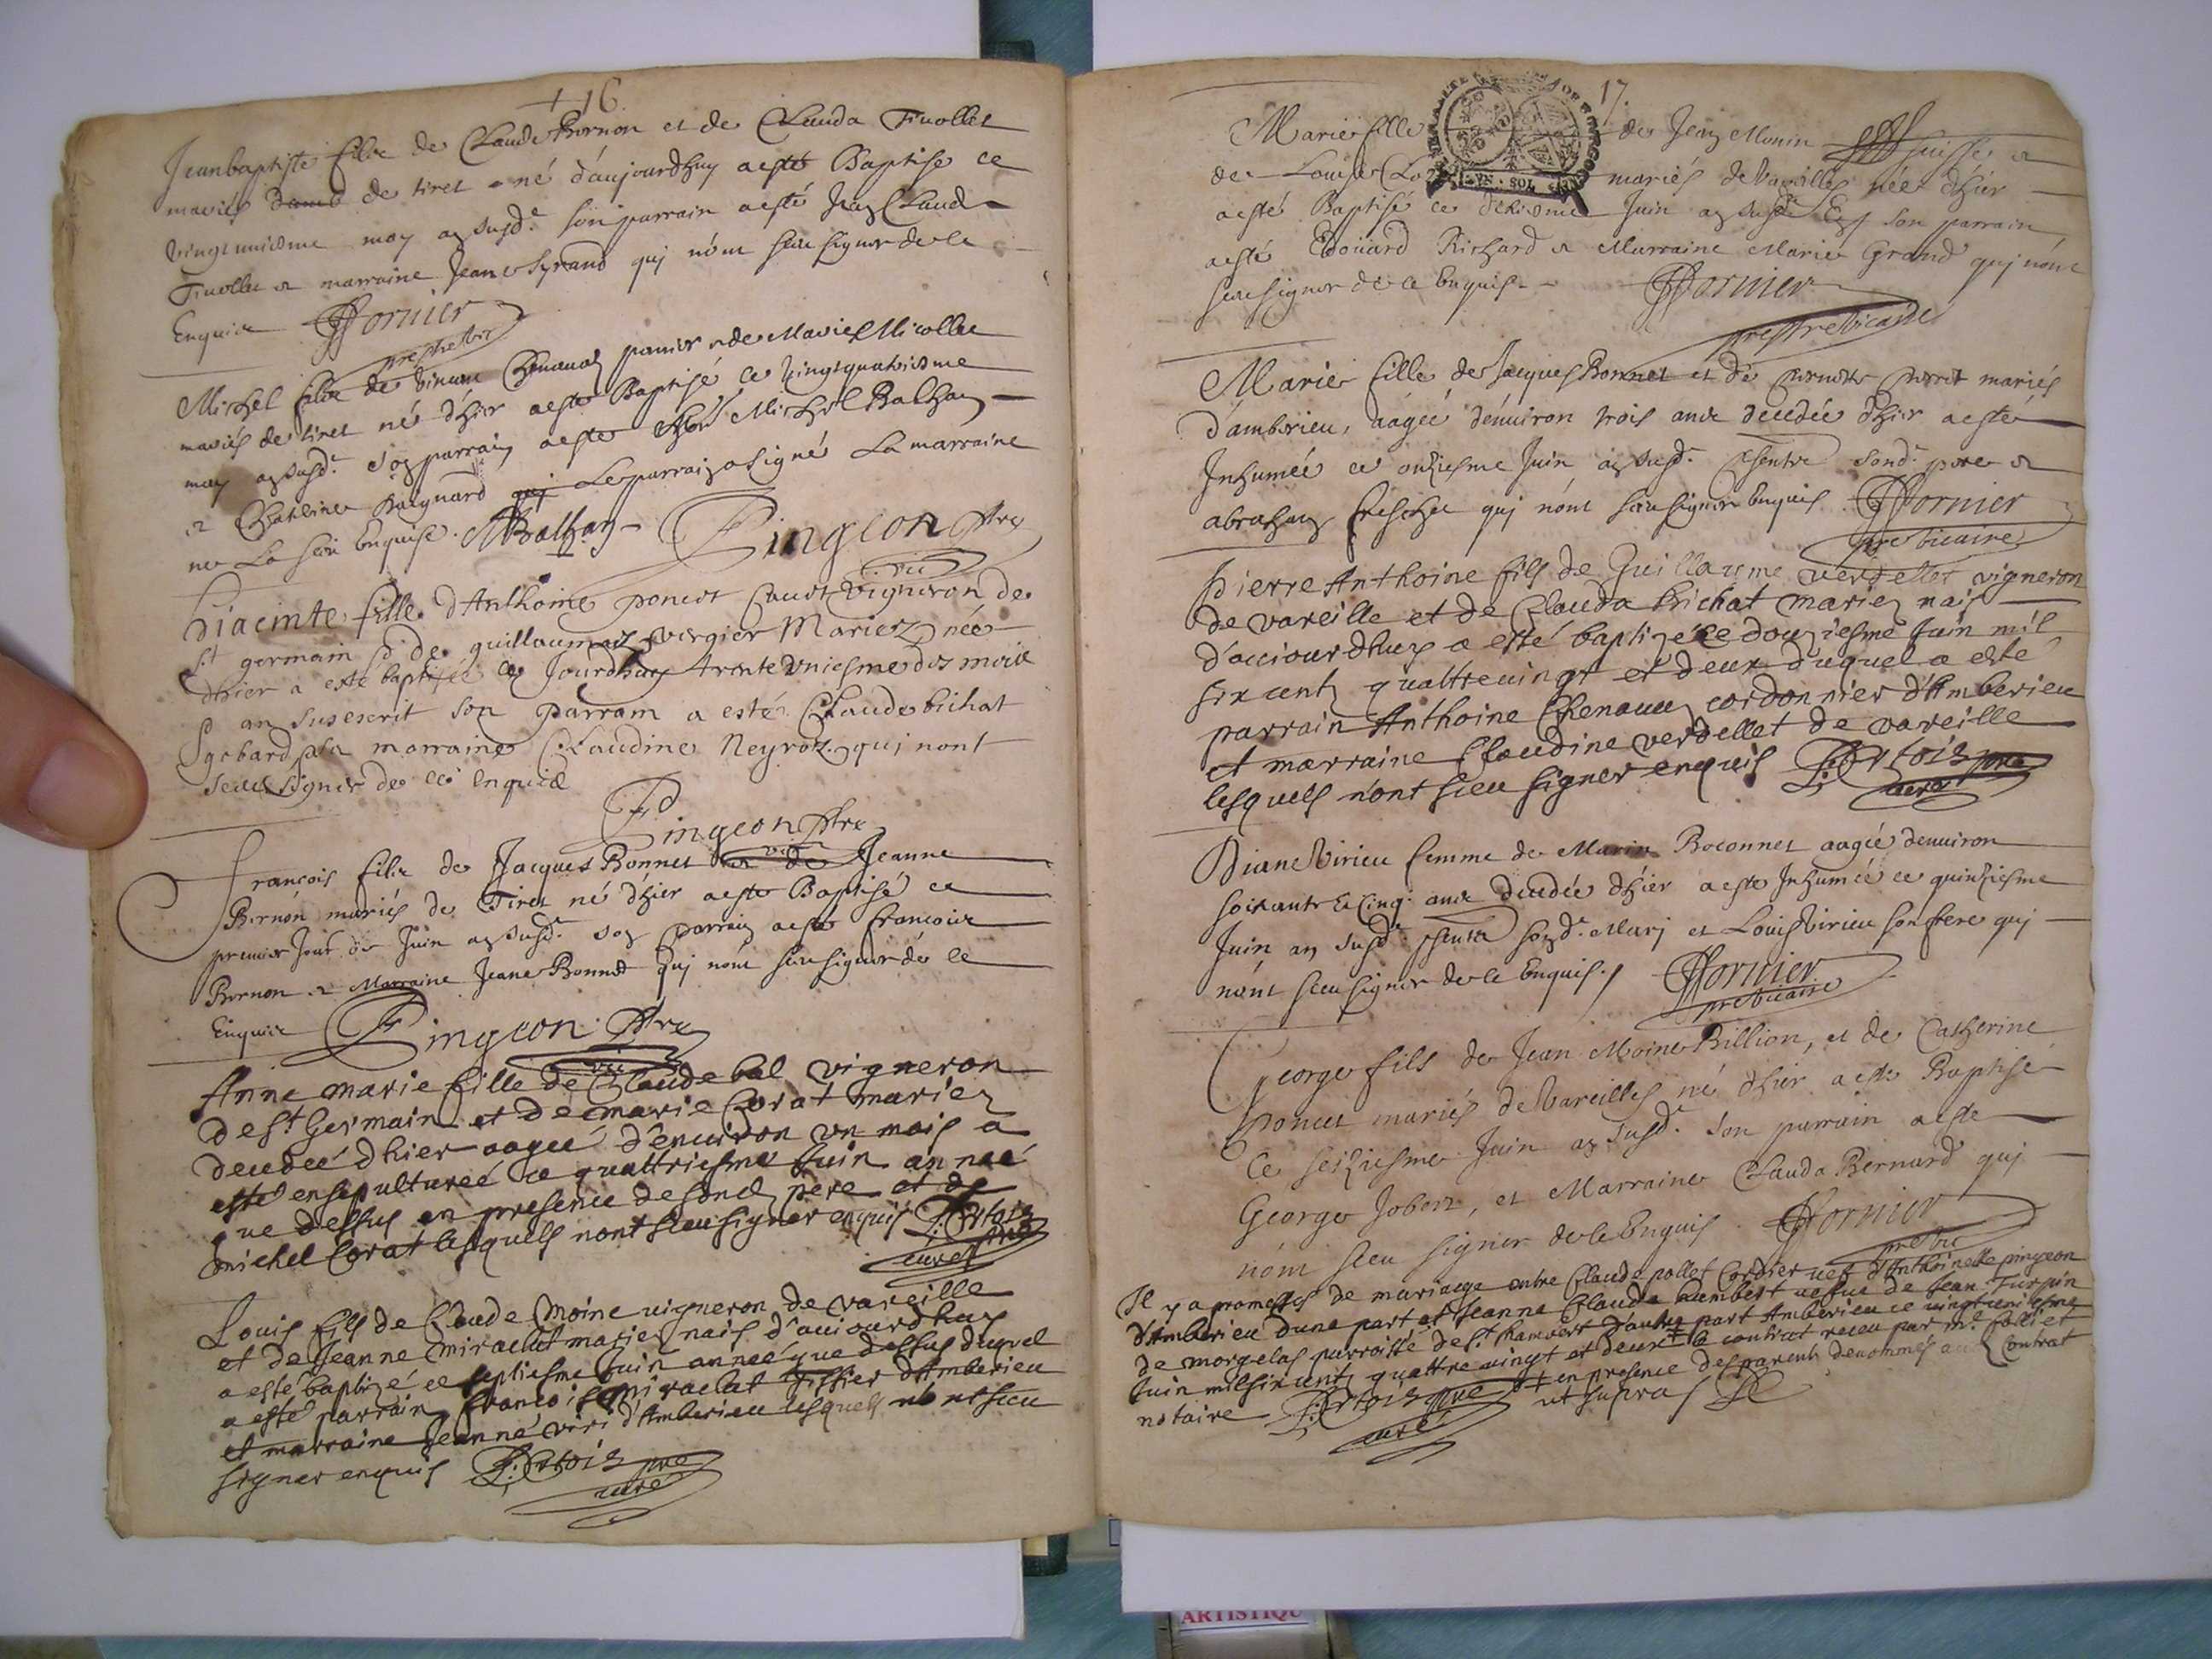 + 16
Jeanbaptiste filz de Claude Bornon et de Clauda Tuollet
mariés de tiret né d'aujourdhuy a esté Baptisé ce
vingtunieme may an susd.t son parrain a esté Jean Claude
Tuollet & marraine Jeane Syraud quj n'ont sceu signer de ce
Enquis FFornier
prestre vic
Michel filz de panier & de Marie Micollet
mariés de tiret né d'hier a esté Baptisé ce vingtquatrieme
may an susd.t son parrain a esté Michel Balhan
& Catherine Le parrain a signé La marraine
ne La sceu Enquise. MBalhan Pingeon ptre
vic
Hiacinte fille d'Anthoine poncet vigneron de
St germain & de guillaumaz vergier Mariez née
dhier a esté baptisée ce Jourdhuy trente vniesme du mois
& an susescrit son parrain a esté Claude bichat
& sa marraine Claudine Neyroz quj nont
sceu signer de ce enquis
Pingeon ptre
vic
François filz de Jacques Bonnet & de Jeanne
Bornon mariés de Tiret né d'hier a esté Baptisé ce
premier jour de Juin an susd.t son parrain a esté francois
Bornon & Marraine Jeane Bonnet quj n'ont sceu signer de ce
Enquis Pingeon ptre
vic
Anne marie fille de Claude bal vigneron
de s.t Germain et de marie Corat mariez
decedeé dhier aageé d'enuiron vn mois a
esté ensepultureé ce quattriesme Juin anneé
que dessus en presence de sond. pere et de
michel Corat lesquels nont sceu signer enquis P: Ortois
curé pre
Louis fils de Claude Moine uigneron de vareille
et de Jeanne mirachet mariez nais d'auiourdhuy
a esté baptizé ce septiesme Juin anneé que dessus duquel
a esté parrain francois mirachat tissier d'Amberieu
et marraine Jeanne viri d'Amberieu lesquels nont sceu
signer enquis P: Ortois pre
curé
17.
Marie fille de Jean Monin suisse &
de Louise mariés de Vareilles née dhier
a esté Baptisé ce dixieme Juin an susd.t son parrain
a esté Edoüard Richard & Marraine Marie Grand quj n'ont
sceu signer de ce Enquis. FFornier
prestre vicaire
Marie fille de Jacques Bonnet et de mariés
d'amberieu, aagée d'enuiron trois ans decedée d'hier a esté
Inhumée ce onziesme Juin an susd.t presents sond. pere &
abraham quj n'ont sceu signer enquis FFornier
pre vicaire
Pierre Anthoine fils de Guillaume verdellet vigneron
de vareille et de Clauda bichat mariez nais
d'auiourdhuy a esté baptizé ce douziesme Juin mil
six cents quattreuingt et deux duquel a esté
parrain Anthoine Chenauaz cordonnier d'Amberieu
et marraine Claudine verdellet de vareille
lesquels n'ont sceu signer enquis P: Ortois pre
curé
Diane Virieu femme de Marin Boconnet aagée denuiron
soixante & cinq ans decedée d'hier a esté Inhumée ce quinziesme
Juin an susd.t presents sond. Marj et Louis Virieu son frere quj
n'ont sceu signer de ce Enquis FFornier
pre vicaire
George fils de Jean Moine Billion, et de Catherine
poncet mariés de Vareilles né d'hier a esté Baptisé
ce seiziesme Juin an susd.t son parrain a esté
George Jobert, et Marraine Clauda Bernard quj
n'ont sceu signer de ce Enquis FFornier
pre vic
Il y a promesses de mariage entre Claude pollet Cordier uef d'Anthoinette pingeon
d'Amberieu dune part et Jeanne Clauda humbert uefue de Jean Turpin
de morgelas parroisse de s.t Rambert d'autre part Amberieu ce uingtuniesme
Juin mil six cents quattre uingt et deux le contrat receu par m.e Collet
notaire P: Ortois pre + en presence des parents denommés aud. Contrat
curé ut supra